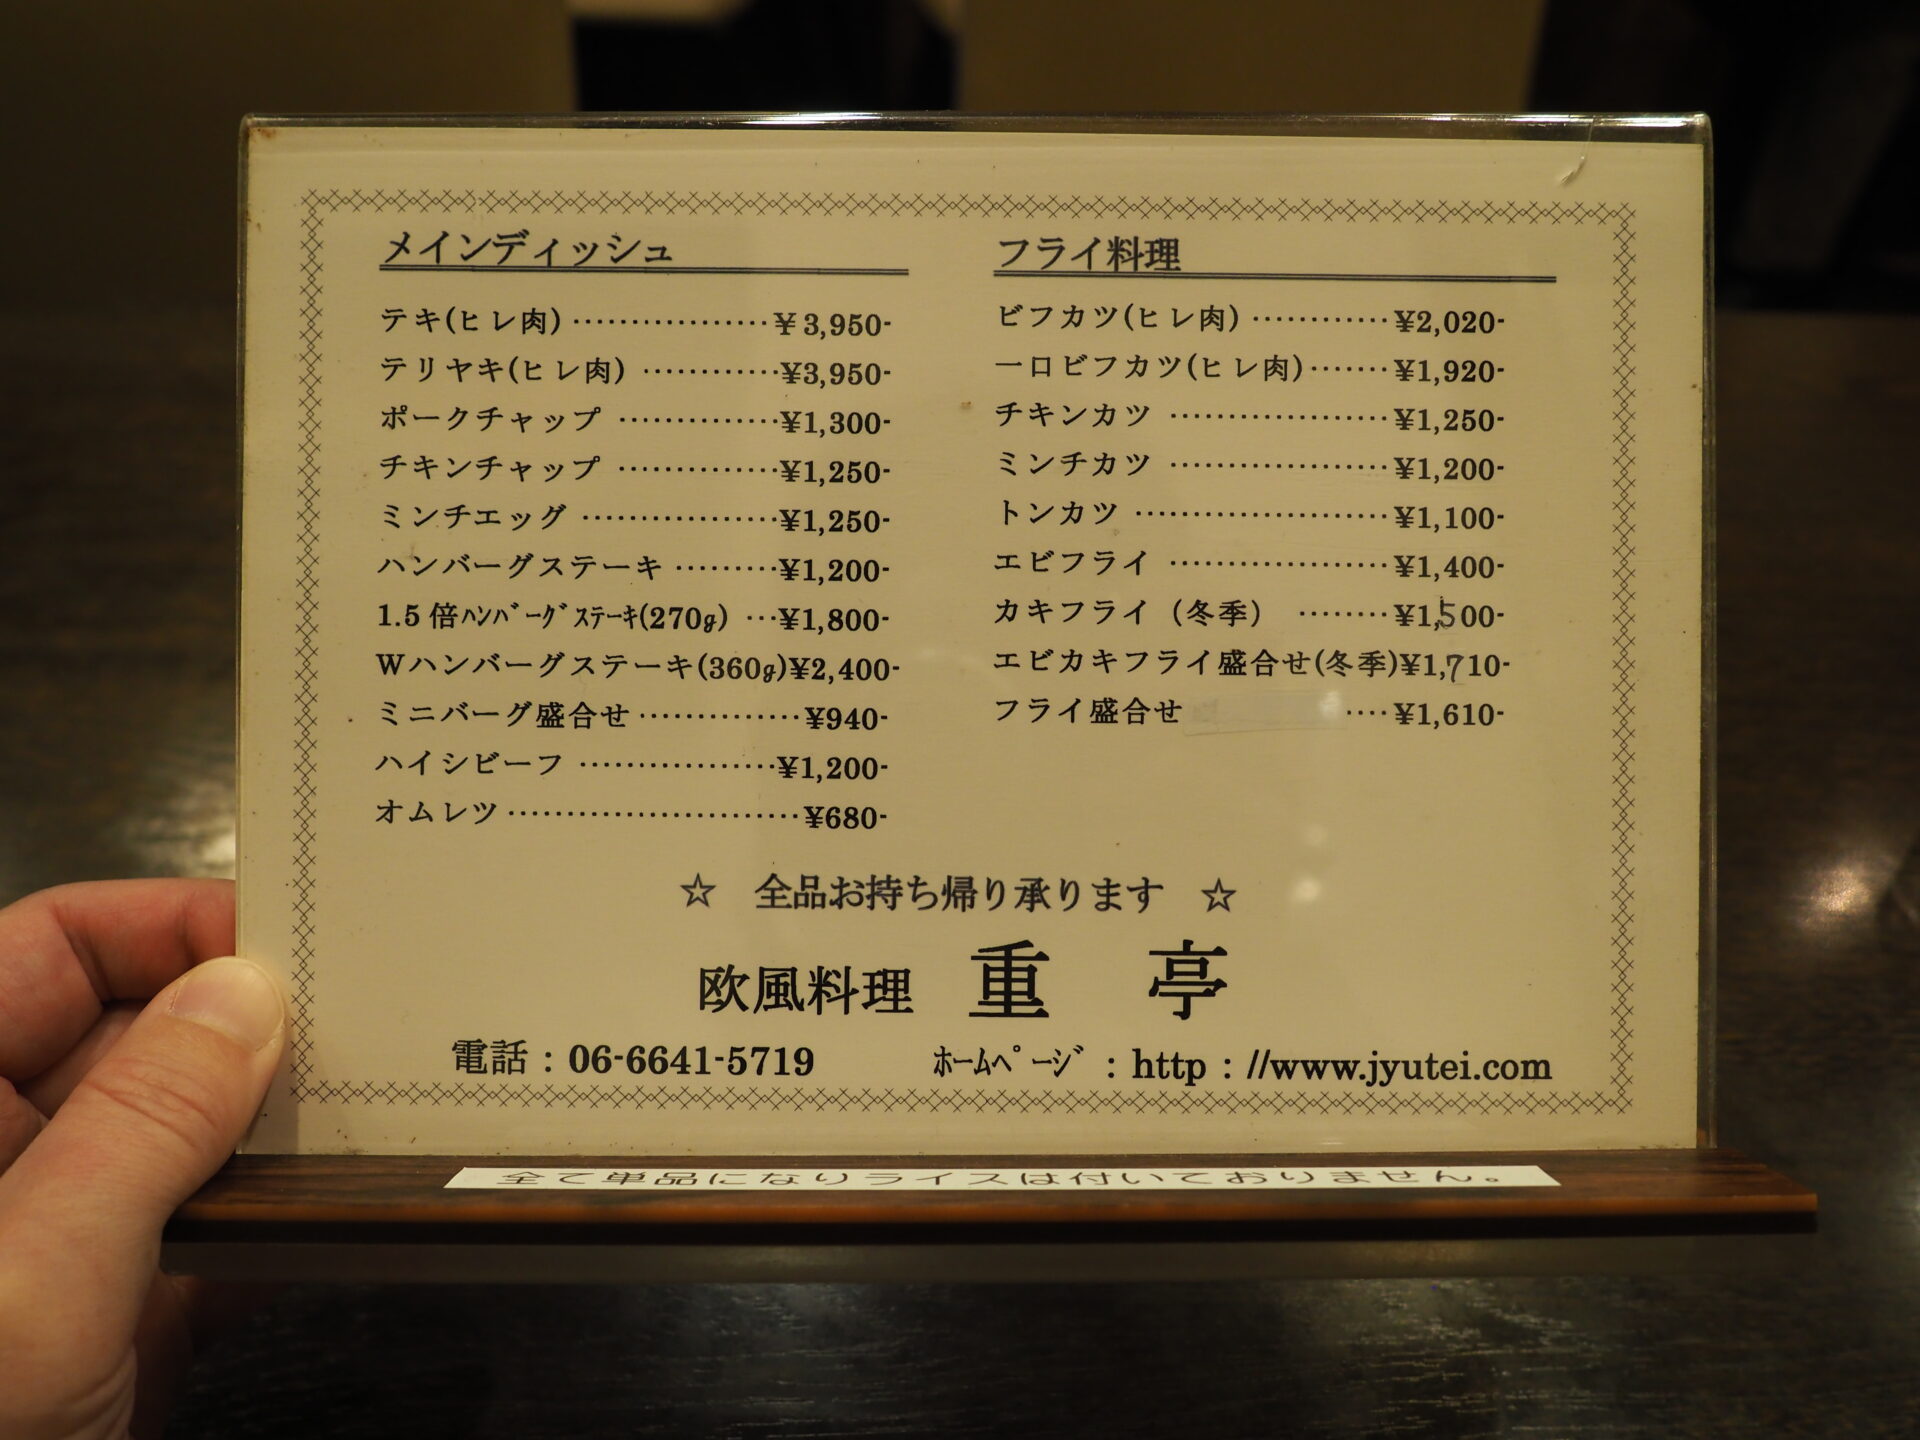 メインディッシュ
テキ(ヒレ肉) ················· ¥3,950-
テリヤキ(ヒレ肉) ············ ¥3,950-
ポークチャップ ·············· ¥1,300-
チキンチャップ ·············· ¥1,250-
ミンチエッグ ················· ¥1,250-
ハンバーグステーキ ········· ¥1,200-
1.5倍ﾊﾝﾊﾞｰｸﾞｽﾃｰｷ(270g) ··· ¥1,800-
Wハンバーグステーキ(360g)¥2,400-
ミニバーグ盛合せ ·············· ¥940-
ハイシビーフ ················· ¥1,200-
オムレツ ························· ¥680-
フライ料理
ビフカツ(ヒレ肉) ············ ¥2,020-
一口ビフカツ(ヒレ肉) ······· ¥1,920-
チキンカツ ··················· ¥1,250-
ミンチカツ ··················· ¥1,200-
トンカツ ······················ ¥1,100-
エビフライ ··················· ¥1,400-
カキフライ（冬季） ········ ¥1,500-
エビカキフライ盛合せ(冬季)¥1,710-
フライ盛合せ ···· ¥1,610-
☆ 全品お持ち帰り承ります ☆
欧風料理 重 亭
電話：06-6641-5719 ﾎｰﾑﾍﾟｰｼﾞ：http：//www.jyutei.com
全て単品になりライスは付いておりません。